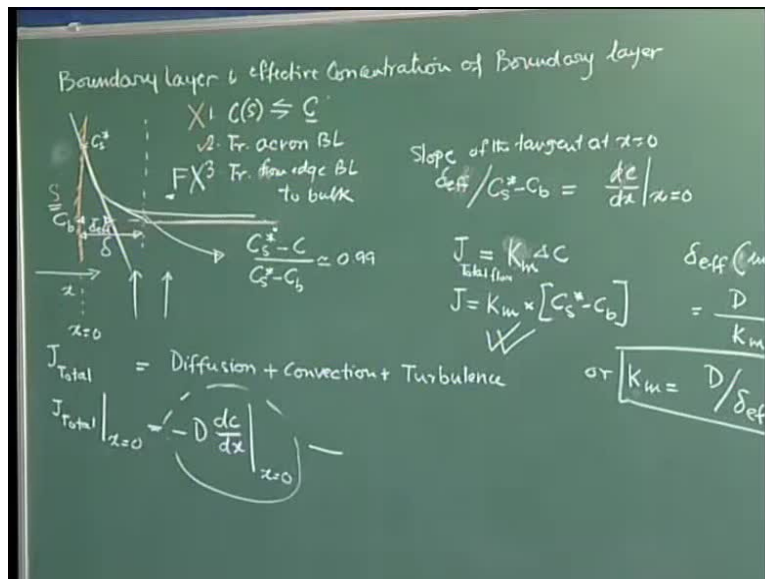 Boundary layer & effective Concentration of Boundary layer
X 1. C(S) ⇆ C
C_S*
✓2. Tr. across BL
F X 3. Tr. from edge BL
to bulk
S
C_b
δ_eff
δ
(C_S* - C) / (C_S* - C_b) ≃ 0.99
x
x=0
Slope of the tangent at x=0
δeff / C_S* - C_b = dc/dx |x=0
J = K_m Δ C
Total flux
J = K_m * [C_S* - C_b]
δ_eff (m
= D / K_m
or K_m = D/δ_ef
J_Total = Diffusion + Convection + Turbulence
J_Total |x=0 = - D dc/dx |x=0 —